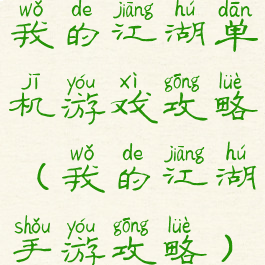 wǒ de jiāng hú dān
我的江湖单
jī yóu xì gōng lüè
机游戏攻略
wǒ de jiāng hú
（我的江湖
shǒu yóu gōng lüè
手游攻略）